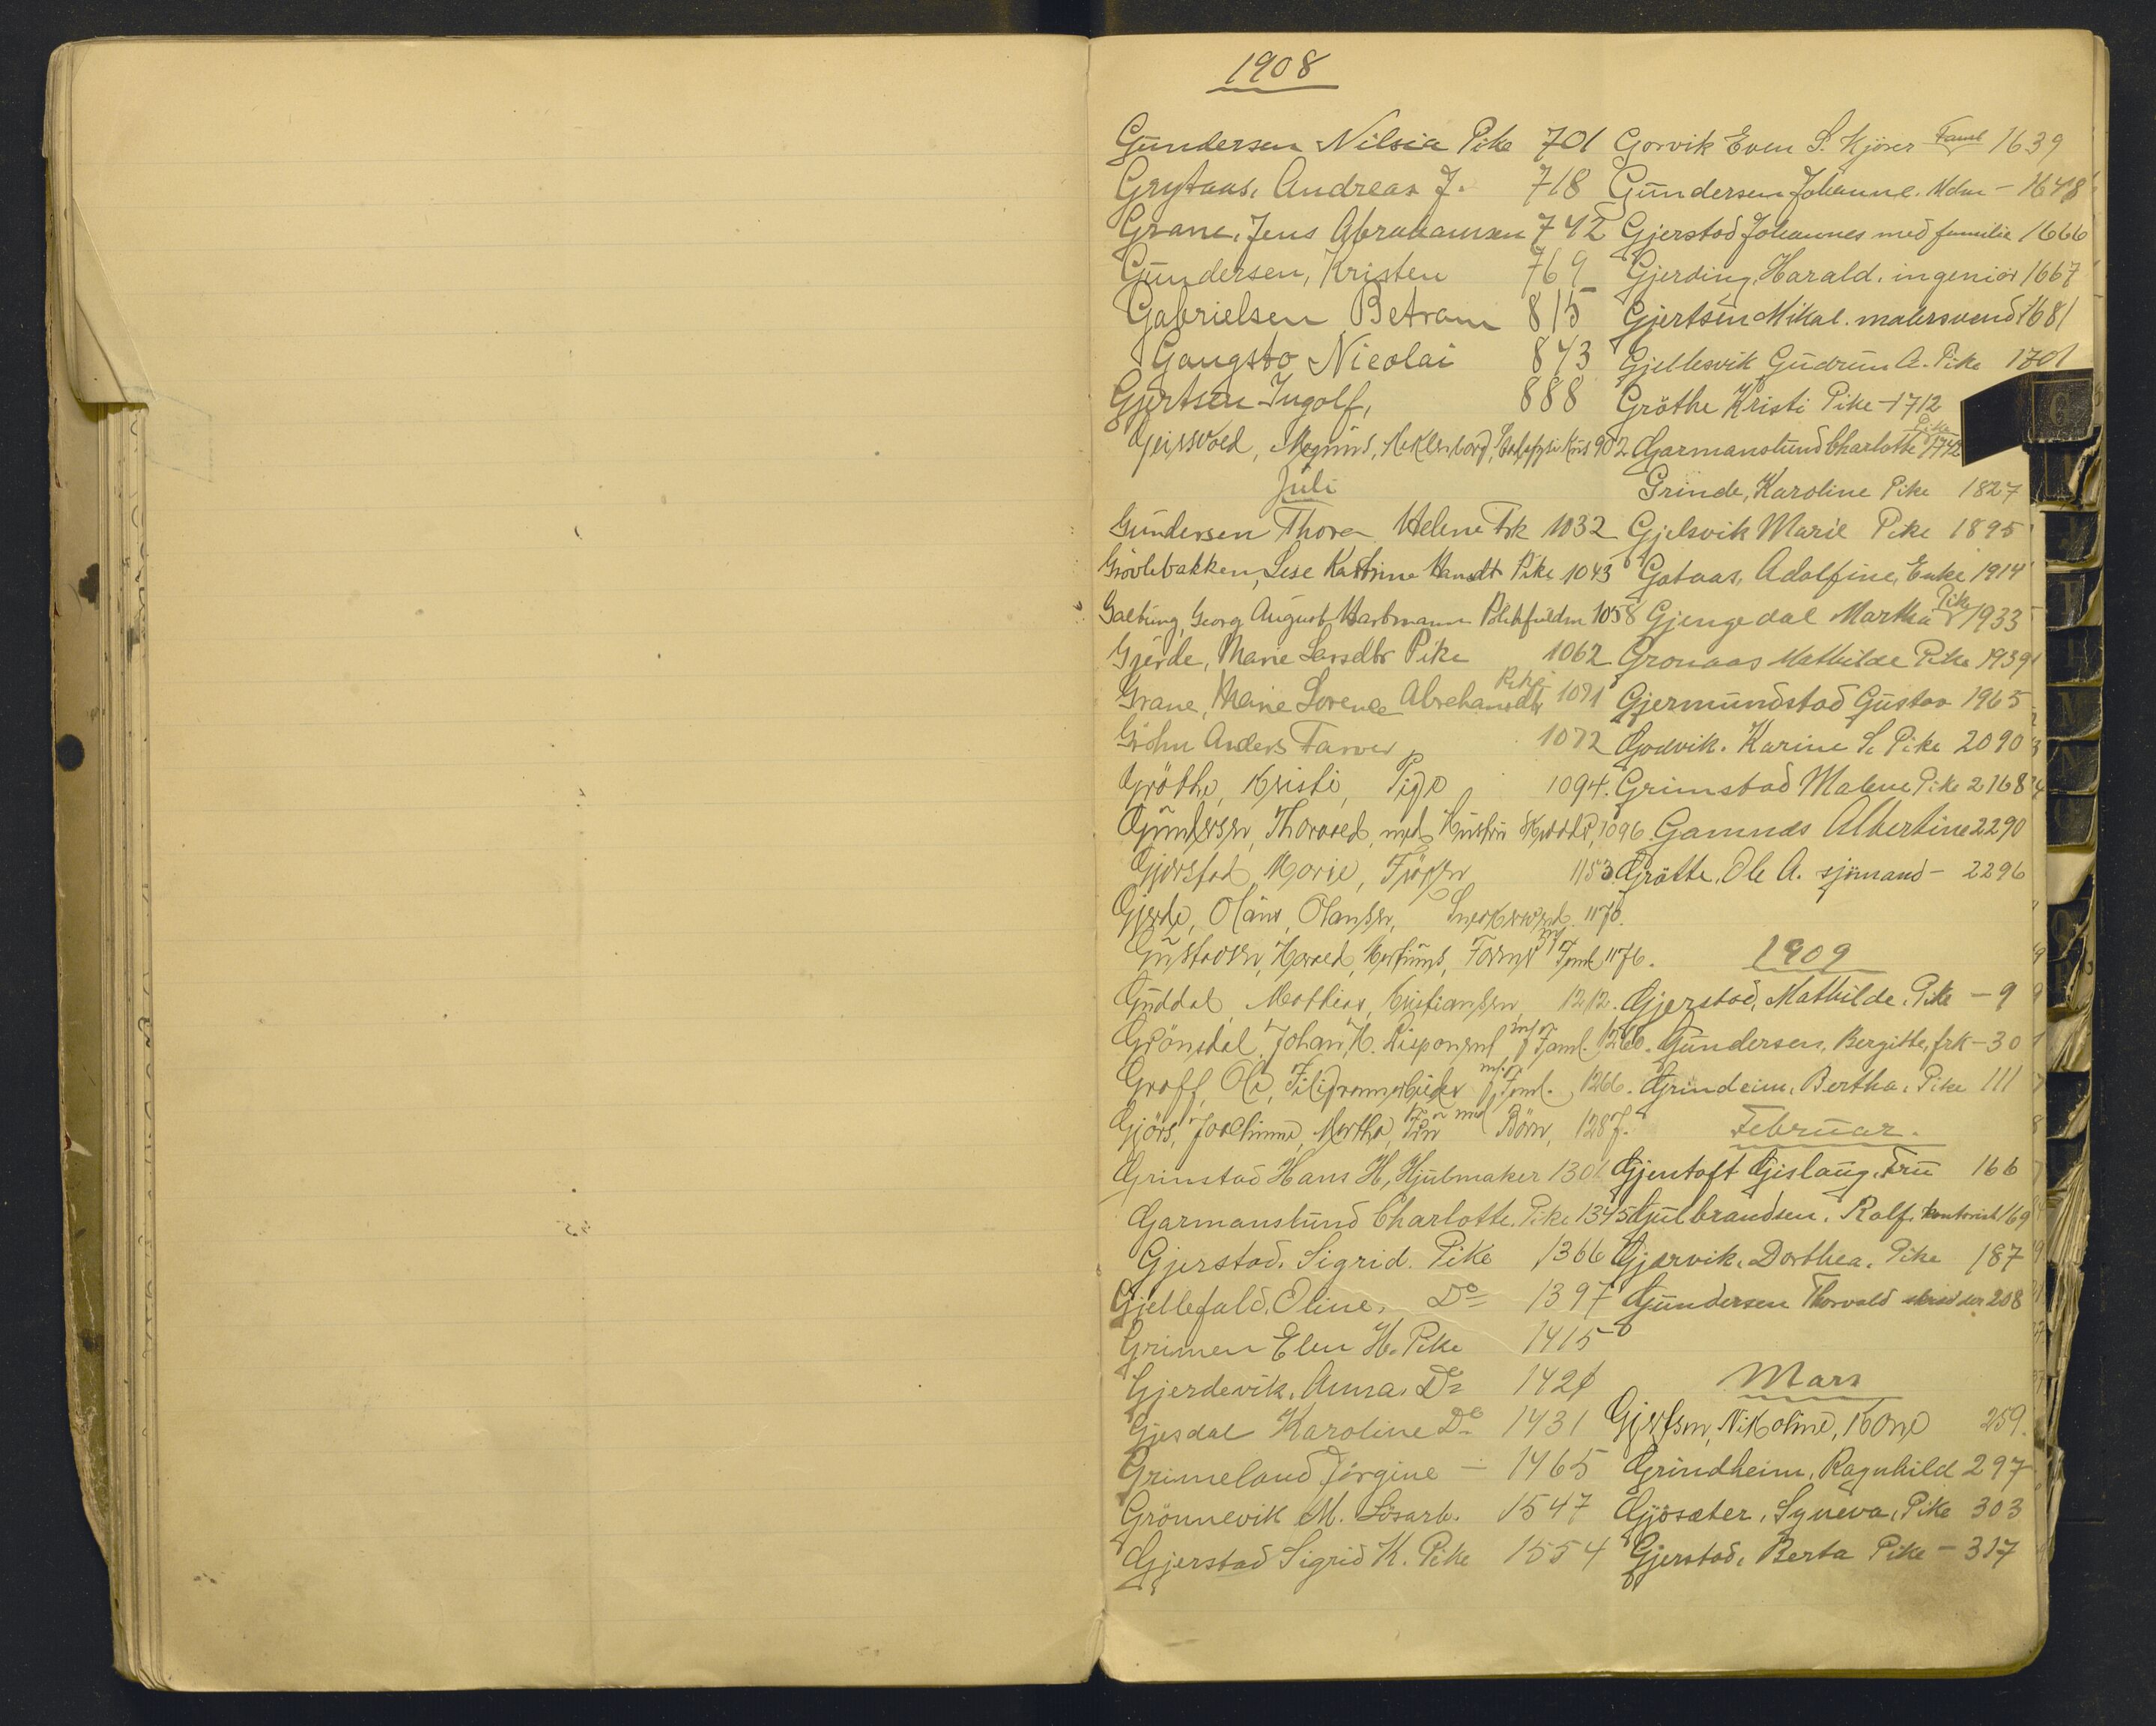 1908
Gundersen Nilsia Pike 701
Grytaas, Andreas J. 718
Grane, Jens Abrahamsen 742
Gundersen, Kristen 769
Gabrielsen Betram 815
Gangstø Nicolai 843
Gjertsen Ingolf, 888
Magnus, 902
Juli
Gundersen Thora Helene Frk 1032
Grövlebakken, Lise Kattrine Hansdt Pike 1043
Georg August Hartmann 1058
Gjerde, Marie Larsdtr Pike 1062
Grane, Marie Lorence Abrahamsdtr Pike 1071
Gröhn Anders Farver 1072
Gröthe, Kristi, Pige 1094.
Gundersen, Thorvald, med Hustru 1096.
Gjerstad, Marie, Frøken 1153.
Gjerde, Olâus, Olausen, 1170.
Gustavsen, Harald, Farver m/ Faml 1176.
Guddal, Mathias, Kristiansen, 1212.
Grönsdal, Johan K. Disponent m/ Faml. 1260.
Graff, Ole, Filigranarbeider m/ Faml. 1266.
Gjörs, Joachime, Martha, Fru med Börn, 1287.
Grimstad Hans H, Hjulmaker 1301
Garmanslund Charlotte. Pike 1345
Gjerstad. Sigrid. Pike 1366
Gjellefald. Oline. Do 1397
Grimen Elen H. Pike 1415
Gjerdevik. Anna. Do 1421
Gjesdal Karoline Do 1431
Grimeland Jörgine — 1465
Grönnevik M. Lösarb. 1547
Gjerstad Sigrid K. Pike 1554
Gorvik Even S. Kjører Faml 1639
Gundersen Johanne. Mdm — 1648
Gjerstad Johannes med familie 1666
Gjerding, Harald. ingeniör 1667
Gjertsen Mikal. malersvend 1681
Gjellesvik Gudrun A. Pike 1701
Gröthe Kristi Pike — 1712
Garmanslund Charlotte Pike 1742
Grinde, Karoline Pike 1827
Gjelsvik Marie Pike 1895
Gotaas, Adolfine, Enke 1914
Gjengedal Martha Pike 1933
Gronaas Mathilde Pike 1939
Gjermundstad Gustav 1965
Godvik. Karine S. Pike 2090
Grimstad Malene Pike 2168
Gamnes Albertine 2290
Grötte, Ole A. sjömand — 2296
1909
Gjerstad, Mathilde. Pike — 9
Gundersen, Bergitte, frk — 30
Grindeim, Bertha. Pike 111
Februar.
Gjentoft Gislaug. Fru 166
Gulbrandsen. Rolf. kontorist 169
Gjervik. Dorthea. Pike 187
Gundersen Thorvald skrædder 208
Mars
Gjertsen, Nikoline, Kone 259.
Grindheim, Ragnhild 297
Gjösæter, Syneva, Pike 303
Gjerstad, Berta Pike — 317